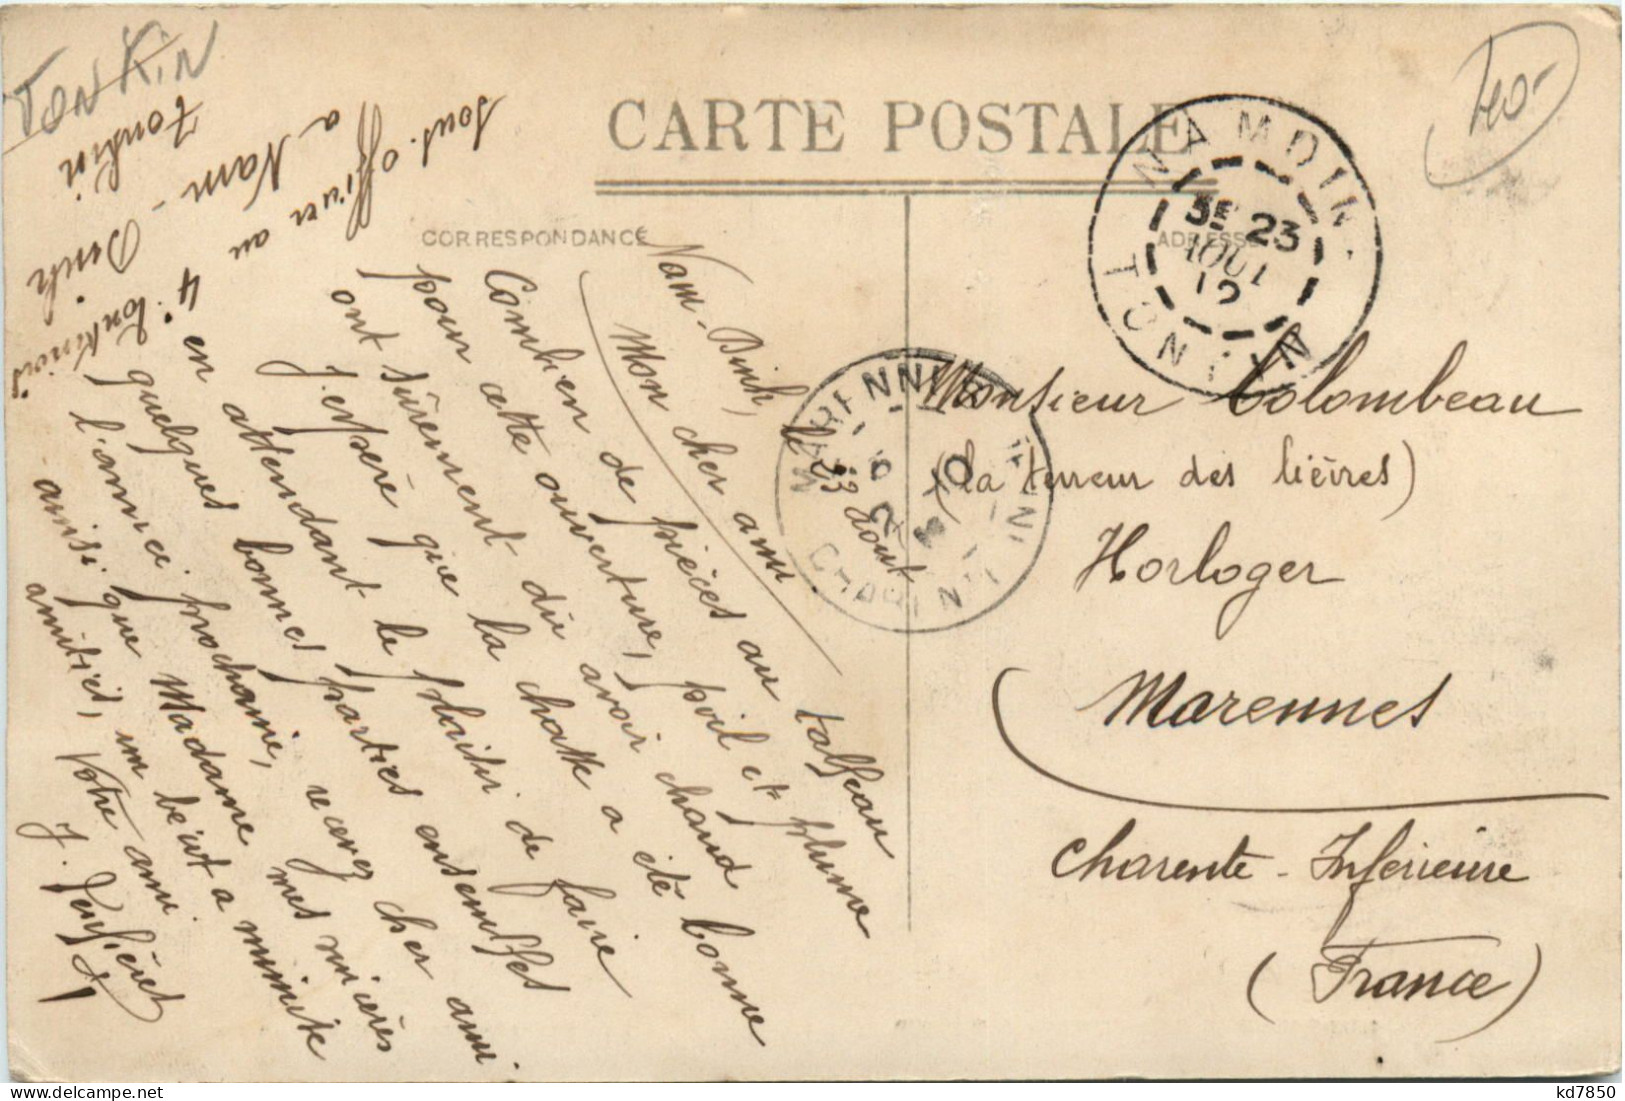 TONKIN
40-
CARTE POSTALE
CORRESPONDANCE
ADRESSE
NAM DINH
3E 23
AOUT
12
TONKIN
MARENNES
CHARENTE INF
Nam-Dinh, le 23 août
Mon cher ami
Combien de pièces au tableau
pour cette ouverture, poil et plume
ont sûrement dû avoir chaud
J'espère que la chasse a été bonne
en attendant le plaisir de faire
quelques bonnes parties ensembles
l'année prochaine, recevez cher ami
ainsi que Madame mes sincères
amitiés, un
Votre ami
J.
sous-officier au
4e tonkinois
a Nam-Dinh
Tonkin
Monsieur Colombeau
(la terreur des lièvres)
Horloger
Marennes
Charente-Inférieure
(France)
kd7850